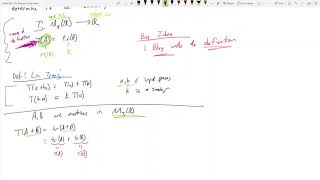 Determine if
T: M₂(ℝ) → ℝ
T(A) = tr(A)
Big Idea
I Play with the definition
Def: Lin Trans:
T(a+b) = T(a) + T(b)
T(ka) = k T(a)
a,b ∈ input space
k is a scalar
A,B are matrices in M₂(ℝ)
T(A+B) = tr(A+B)
= tr(A) + tr(B)
T(A) T(B)